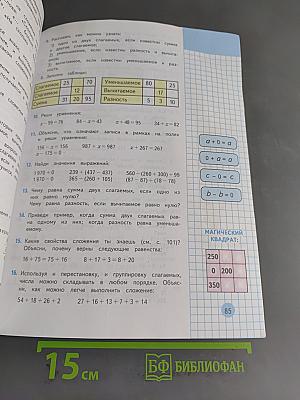 8. Расскажи, как можно узнать:
1) одно из двух слагаемых, если известны сумма
и другое слагаемое;
2) уменьшаемое, если известны разность и вычита-
емое;
3) вычитаемое, если известны уменьшаемое и раз-
ность.
9. Заполни таблицы:
Слагаемое 25 70
Слагаемое 12
Сумма 31 20 95
Уменьшаемое 80 25
Вычитаемое 17
Разность 5 3 10
10. Реши уравнения:
x − 99 = 76 84 − x = 43 x + 40 = 95 34 + x = 82
11. Объясни, что означают записи в рамках на полях
и реши уравнения:
156 − x = 156 987 + x = 987 x + 267 = 267
x − 175 = 0
12. Найди значения выражений:
1 970 + 0 239 + (437 − 437) 560 − (260 + 300) + 95
1 970 − 0 365 − (260 + 105) (87 − 87) + (78 − 78)
13. Чему равна сумма двух слагаемых, если одно из
них равно нулю?
Чему равна разность, если вычитаемое равно нулю?
14. Приведи пример, когда сумма двух слагаемых рав-
на одному из них; когда разность равна уменьша-
емому.
15. Какие свойства сложения ты знаешь (см. с. 101)?
Объясни, почему верны следующие равенства:
16 + 75 = 75 + 16 8 + 17 + 3 = 8 + 20
16. Используя и перестановку, и группировку слагаемых,
числа можно складывать в любом порядке. Объяс-
ни, как можно легче выполнить сложение:
54 + 18 + 26 + 2 27 + 16 + 13 + 7 + 3 + 14
a + 0 = a
0 + a = a
c − 0 = c
b − b = 0
МАГИЧЕСКИЙ
КВАДРАТ:
250
0 200
350
85
15 см
БФ БИБЛИОФАН